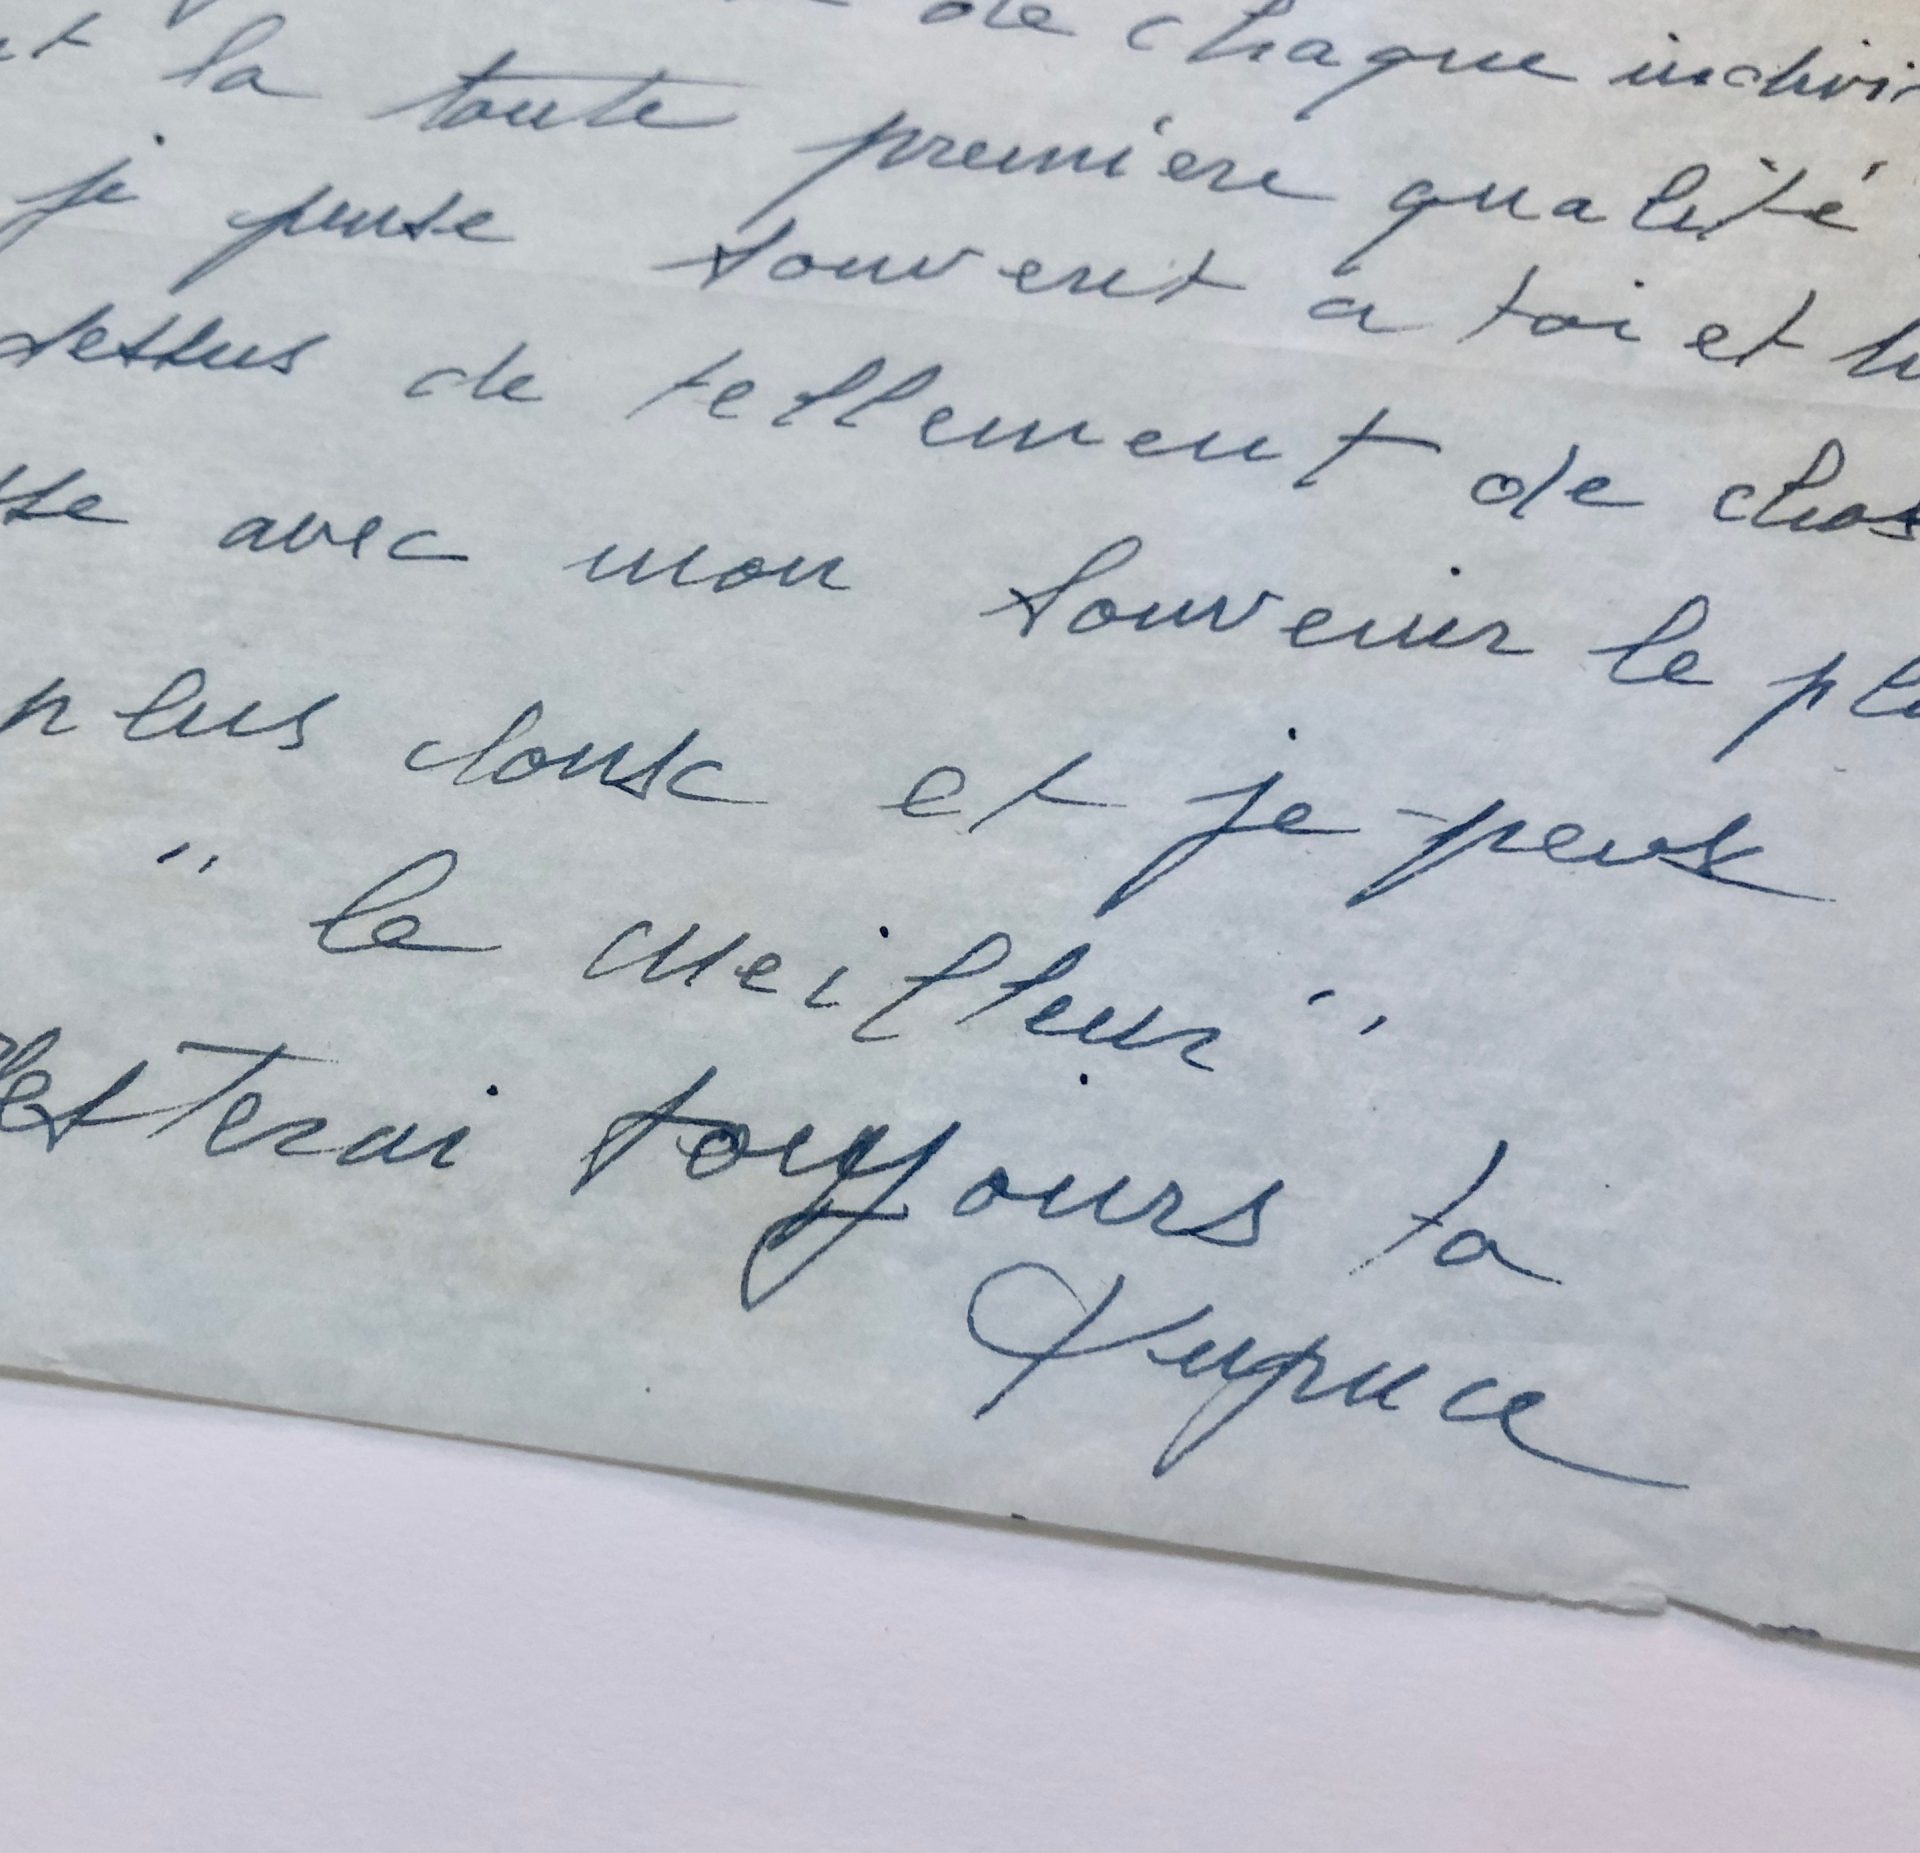 de chaque indivi
la toute première qualité
je pense souvent a toi et
dessus de tellement de chos
avec mon souvenir le pl
plus doux et je peux
" le meilleur "
resterai toujours ta